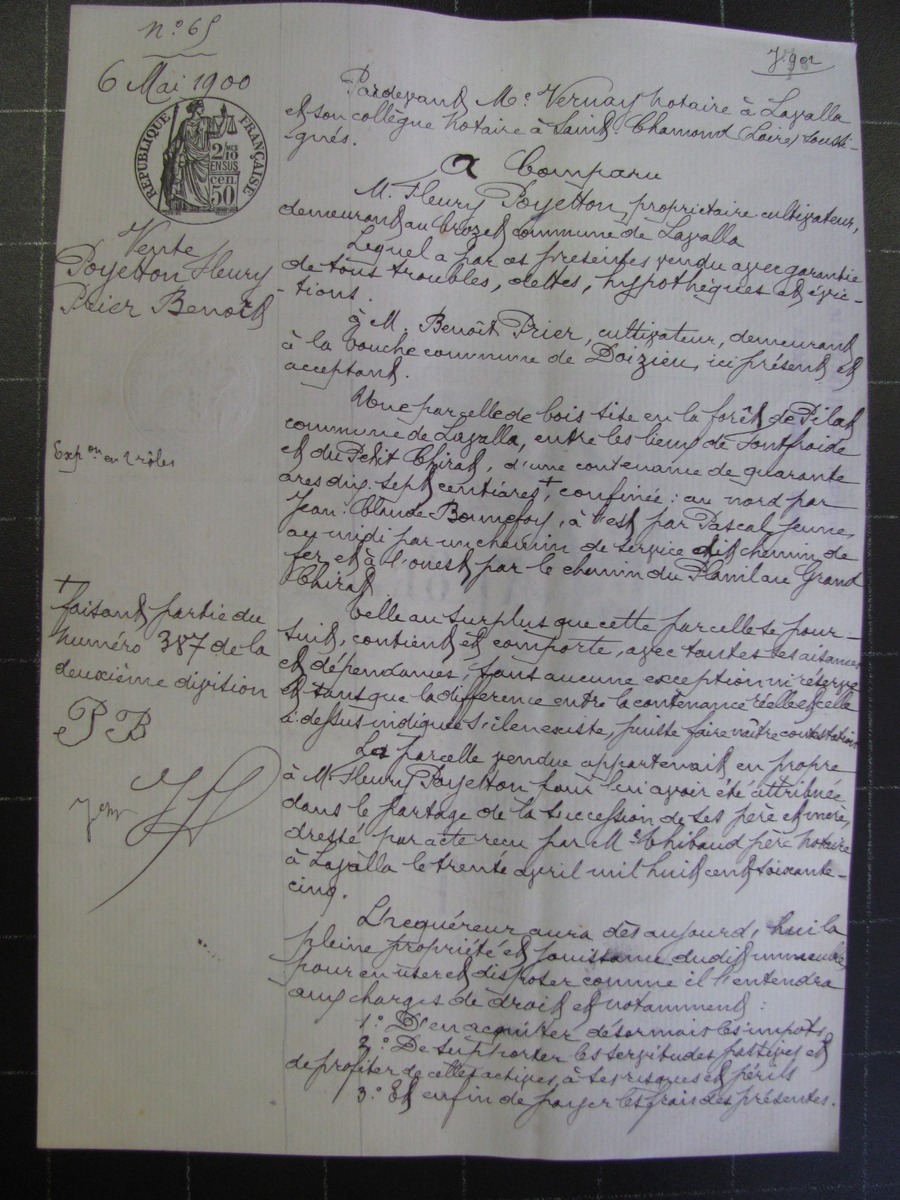 n° 65
6 Mai 1900
RÉPUBLIQUE FRANÇAISE
2/10 EN SUS
cen. 50
Vente
Poyetton Fleury
Prier Benoît
Expon en 2 rôles
+
faisant partie du
numéro 387 de la
deuxième division
P B
Pardevant Me Vernay notaire à Lavalla
et son collègue notaire à Saint Chamond (Loire) soussi-
gnés.
a Comparu
M. Fleury Poyetton, propriétaire cultivateur,
demeurant au Crozet commune de Lavalla
Lequel a par ces présentes vendu avec garantie
de tous troubles, dettes, hypothèques et évic-
-tions.
à M. Benoît Prier, cultivateur, demeurant
à la Bouche commune de Doizieu, ici présent et
acceptant.
Une parcelle de bois sise en la forêt de Pilat
commune de Lavalla, entre les lieux de Fontfroide
et du Petit Chirat, d'une contenance de quarante
ares dix sept centiares +, confinée : au nord par
Jean-Claude Bonnefoy, à l'est par Pascal Jeune,
au midi par un chemin de service dit chemin de
fer et à l'ouest par le chemin du Planil au Grand
Chirat
Telle au surplus que cette parcelle se pour-
suit, contient et comporte, avec toutes ses aisances
et dépendances, sans aucune exception ni réserve
et sans que la différence entre la contenance réelle et celle
ci-dessus indiquée s'il en existe, puisse faire naître contestation
La parcelle vendue appartenait en propre
à M. Fleury Poyetton pour lui avoir été attribuée
dans le partage de la succession de ses père et mère,
dressé par acte reçu par Me Thibaud père notaire
à Lavalla le trente avril mil huit cent soixante-
cinq.
L'acquéreur aura dès aujourd'hui la
pleine propriété et jouissance dudit immeuble
pour en user et disposer comme il l'entendra
aux charges de droit et notamment :
1° D'en acquitter désormais les impôts
2° De supporter les servitudes passives et
de profiter de celles actives, à ses risques et périls
3° Et enfin de payer les frais des présentes.